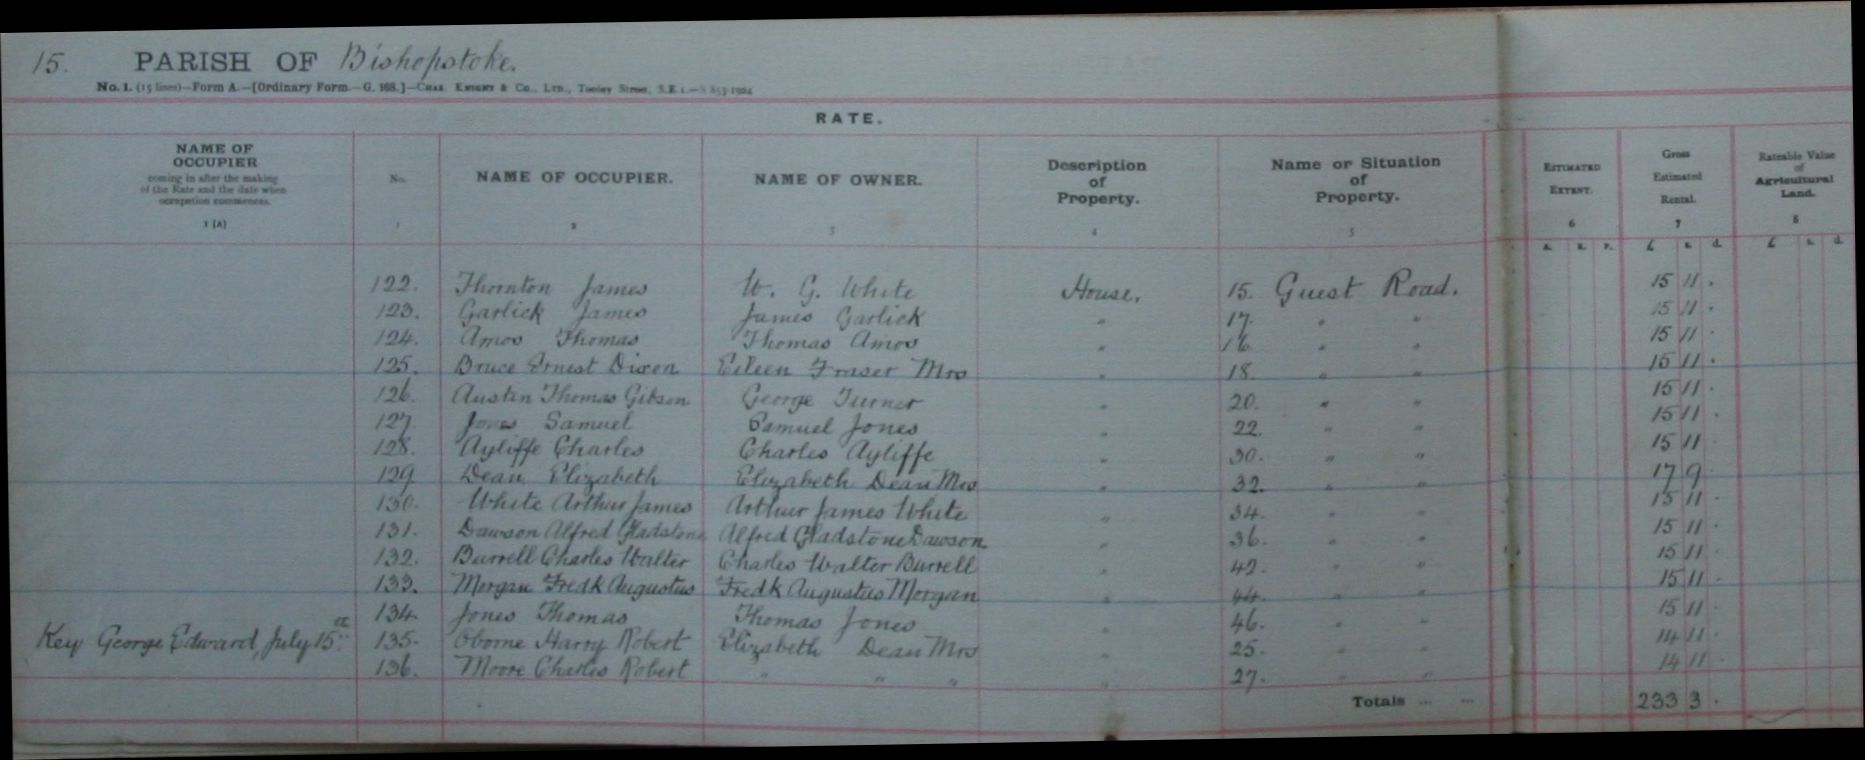 15. PARISH OF Bishopstoke.
No. 1. (15 lines)—Form A.—[Ordinary Form.—G. 168.]—Chas. Knight & Co., Ltd., Tooley Street, S.E.1.—S 853-1924
RATE.
NAME OF OCCUPIER coming in after the making of the Rate and the date when occupation commences. No. NAME OF OCCUPIER. NAME OF OWNER. Description of Property. Name or Situation of Property. Estimated Extent. Gross Estimated Rental. Rateable Value of Agricultural Land.
1 (A) 1 2 3 4 5 6 7 8
A. R. P. £ s. d. £ s. d.
122. Thornton James W. G. White House, 15. Guest Road. 15 11 .
123. Garlick James James Garlick " 17. " " 15 11 .
124. Amos Thomas Thomas Amos " 16. " " 15 11 .
125. Bruce Ernest Dixon Eileen Fraser Mrs " 18. " " 15 11 .
126. Austin Thomas Gibson George Turner " 20. " " 15 11 .
127. Jones Samuel Samuel Jones " 22. " " 15 11 .
128. Ayliffe Charles Charles Ayliffe " 30. " " 15 11 .
129. Dean Elizabeth Elizabeth Dean Mrs " 32. " " 17 9 .
130. White Arthur James Arthur James White " 34. " " 15 11 .
131. Dawson Alfred Gladstone Alfred Gladstone Dawson " 36. " " 15 11 .
132. Burrell Charles Walter Charles Walter Burrell " 42. " " 15 11 .
133. Morgan Fredk Augustus Fredk Augustus Morgan " 44. " " 15 11 .
134. Jones Thomas Thomas Jones " 46. " " 15 11 .
Key George Edward, July 15th. 135. Oborne Harry Robert Elizabeth Dean Mrs " 25. " " 14 11 .
136. Moore Charles Robert " " " " 27. " " 14 11 .
Totals ... ... 233 3 .